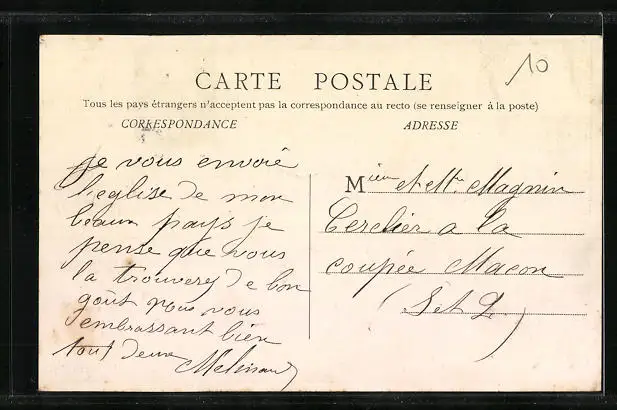 10
CARTE POSTALE
Tous les pays étrangers n'acceptent pas la correspondance au recto (se renseigner à la poste)
CORRESPONDANCE
ADRESSE
je vous envoie
l'eglise de mon
beaux pays je
pense que vous
la trouverez de bon
goût vous
embrassant bien
tout deux
Mieur et Mme Magnin
Cerclier a la
coupée Macon
(S et L)